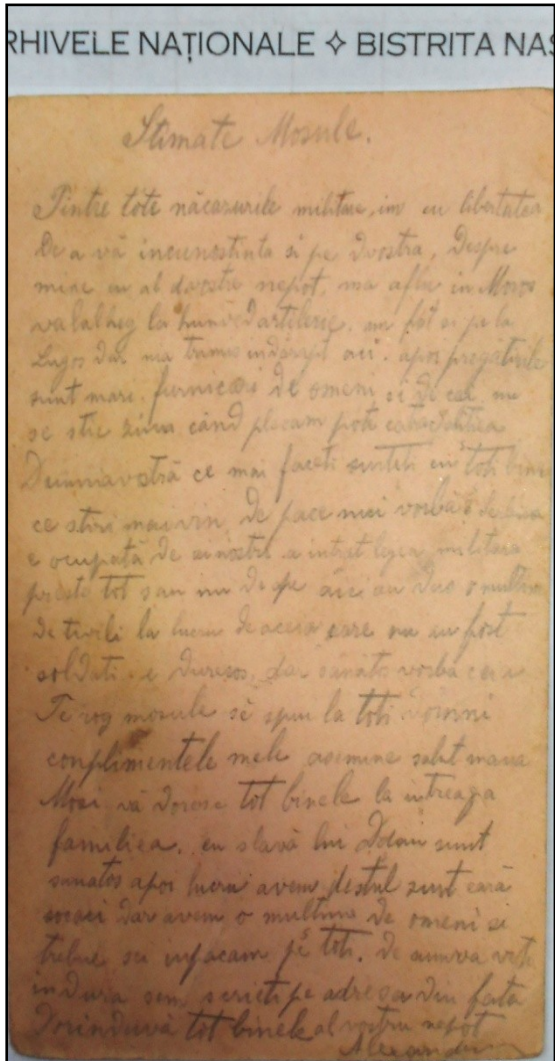 RHIVELE NAȚIONALE ✧ BISTRITA NAS
Stimate Mosule.
Pintre tote năcazurile militare, im eu libertatea
De a vă incunostinta si pe Dvostra, Despre
mine eu al dvostre nepot, ma aflu in Moros
la hunved artilerie. am fost si pe la
Lugos dar ma trimis indărapt aici. apoi pregatirile
sunt mari, furnicari de omeni si de cai nu
se stie ziua cănd plecam pote
Dumniavostră ce mai faceti sunteti cu toti bine
ce stiri mai vin, de pace nici vorbă
e ocupată de ai nostri a intrat legea militara
preste tot sau nu de pe aici au dus o multime
de tivili la lucru de aceia care nu au fost
soldati. e dureros, dar sănătos vorba ceia
Te rog mosule să spui la toti
complimentele mele asemine salut mana
Mosi vă doresc tot binele la intreaga
familiea. eu slavă lui Dzeu sunt
sanatos apoi lucru avem destul sunt eară
socaci dar avem o multime de omeni si
trebue sa infacam pe toti. De aumva veti
indura sem scrieti pe adresa din fata
Dorinduvă tot binele al vostru nepot
Alexandru